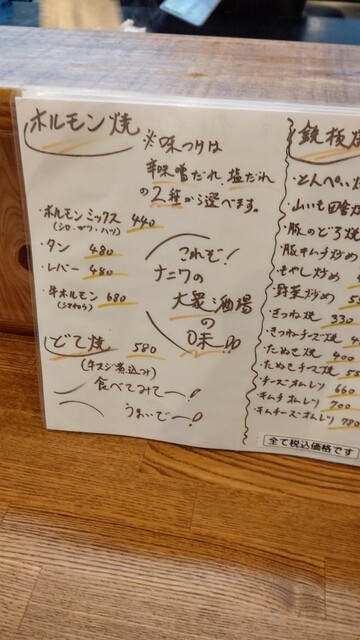 ホルモン焼
※味つけは
辛味噌だれ、塩だれ
の2種から選べます。
・ホルモンミックス 440
(シロ・ガツ・ハツ)
・タン 480
・レバー 480
・牛ホルモン 680
(シマチョウ)
これぞ!
ナニワの
大衆酒場
の
味!!
どて焼 580
(牛スジ煮込み)
食べてみて〜!
うまいで〜!
鉄板焼
・とんぺい焼
・山いも田舎焼
・豚のどろ焼
・豚キムチ炒め
・もやし炒め
・野菜炒め
・きつね焼 330
・きつねチーズ焼
・たぬき焼 400
・たぬきチーズ焼
・チーズオムレツ 660
・キムチオムレツ 700
・キムチーズオムレツ 780
全て税込価格です